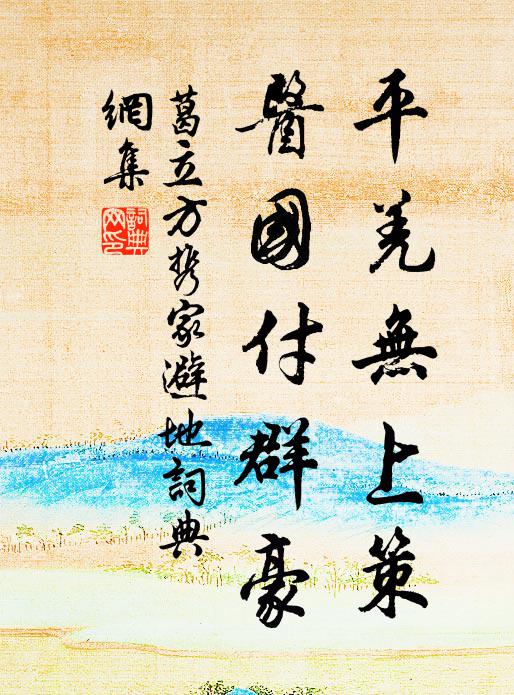 平羌無上策
醫國付群豪
葛立方攜家避地詞典
網集
詞典
网印